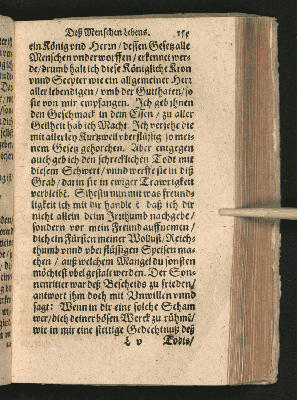 Deß Menschen lebens.
ein König vnd Herrn / dessen Gesetz alle
Menschen vnderworffen / erkennet wer-
de / drumb halt ich diese Königliche Kron
vnnd Scepter wie ein allgemeiner Herr
aller lebendigen / vmb der Gutthaten / so
sie von mir empfangen. Ich geb ihnen
den Geschmack in dem Essen / zu aller
Geilheit hab ich Macht. Ich versehe die
mit allerley Kurtzweil vberflüssig / so mei-
nem Gesetz gehorchen. Aber entgegen
auch geb ich den schrecklichen Todt mit
diesem Schwert / vnnd werffe sie in diß
Grab / darin sie in ewiger Trawrigkeit
verbleibē. Sihestu nun mit was freund-
ligkeit ich mit dir handle / daß ich dir
nicht allein dein Irthumb nachgebe /
sondern vor mein Freund auffnemen /
dich ein Fürsten meiner Wollust / Reich-
thumb vnnd vberflüssigen Speisen ma-
chen / auß welchem Mangel du sonsten
möchtest vbel gestalt werden. Der Son-
nenritter war deß Bescheids zu frieden /
antwort ihm doch mit Vnwillen vnnd
sagt: Wenn in dir eine solche Scham
wer / dich deiner bösen Werck zu rühmē /
wie in mir eine stettige Gedechtnuß deß
L v Todts /